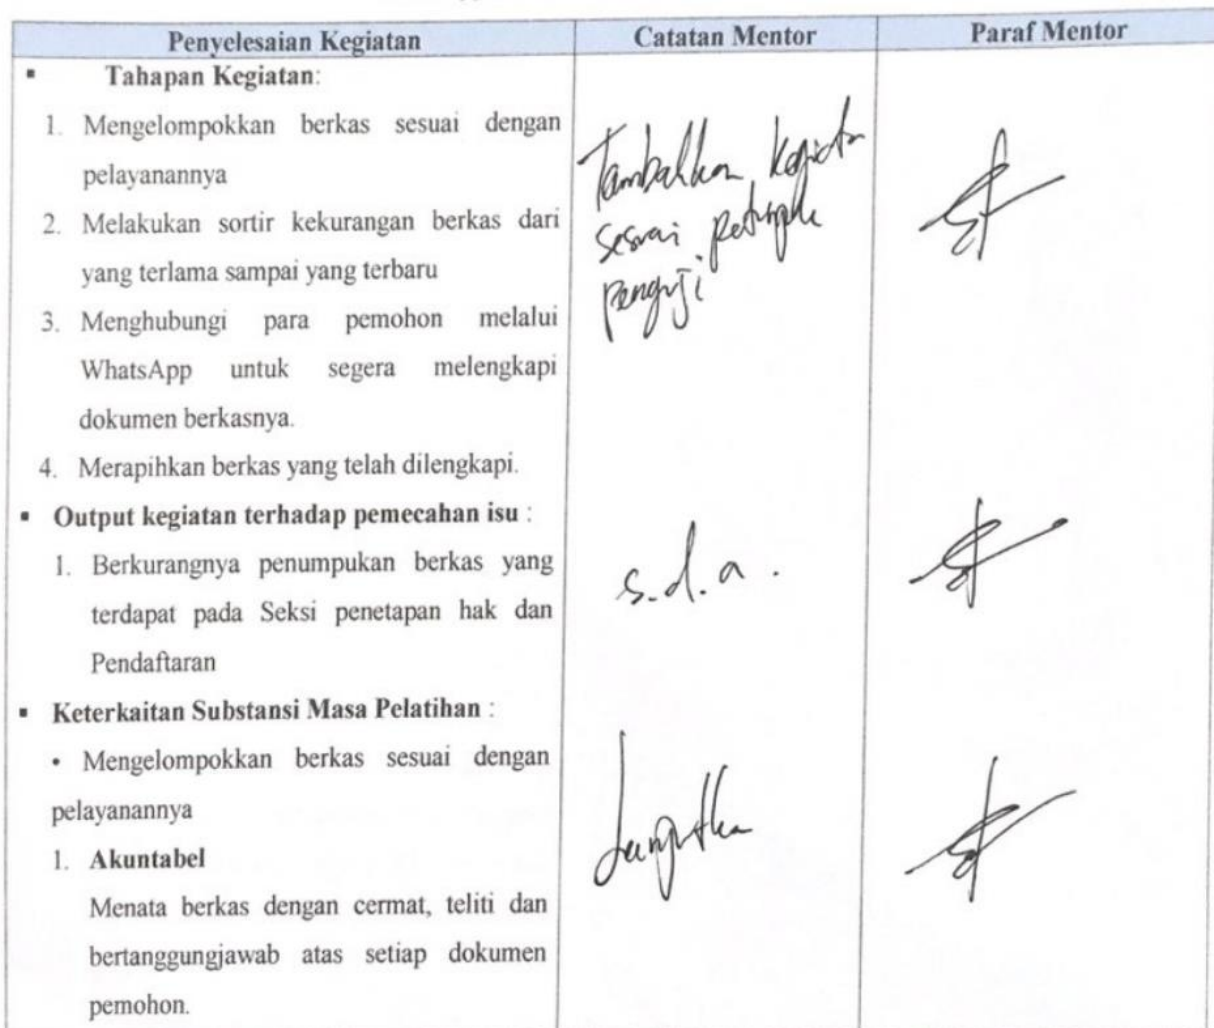 Penyelesaian Kegiatan
Catatan Mentor
Paraf Mentor
▪ Tahapan Kegiatan:
1. Mengelompokkan berkas sesuai dengan
pelayanannya
2. Melakukan sortir kekurangan berkas dari
yang terlama sampai yang terbaru
3. Menghubungi para pemohon melalui
WhatsApp untuk segera melengkapi
dokumen berkasnya.
4. Merapihkan berkas yang telah dilengkapi.
Tambahkan
sesuai
penguji
▪ Output kegiatan terhadap pemecahan isu :
1. Berkurangnya penumpukan berkas yang
terdapat pada Seksi penetapan hak dan
Pendaftaran
s.d.a.
▪ Keterkaitan Substansi Masa Pelatihan :
• Mengelompokkan berkas sesuai dengan
pelayanannya
1. Akuntabel
Menata berkas dengan cermat, teliti dan
bertanggungjawab atas setiap dokumen
pemohon.